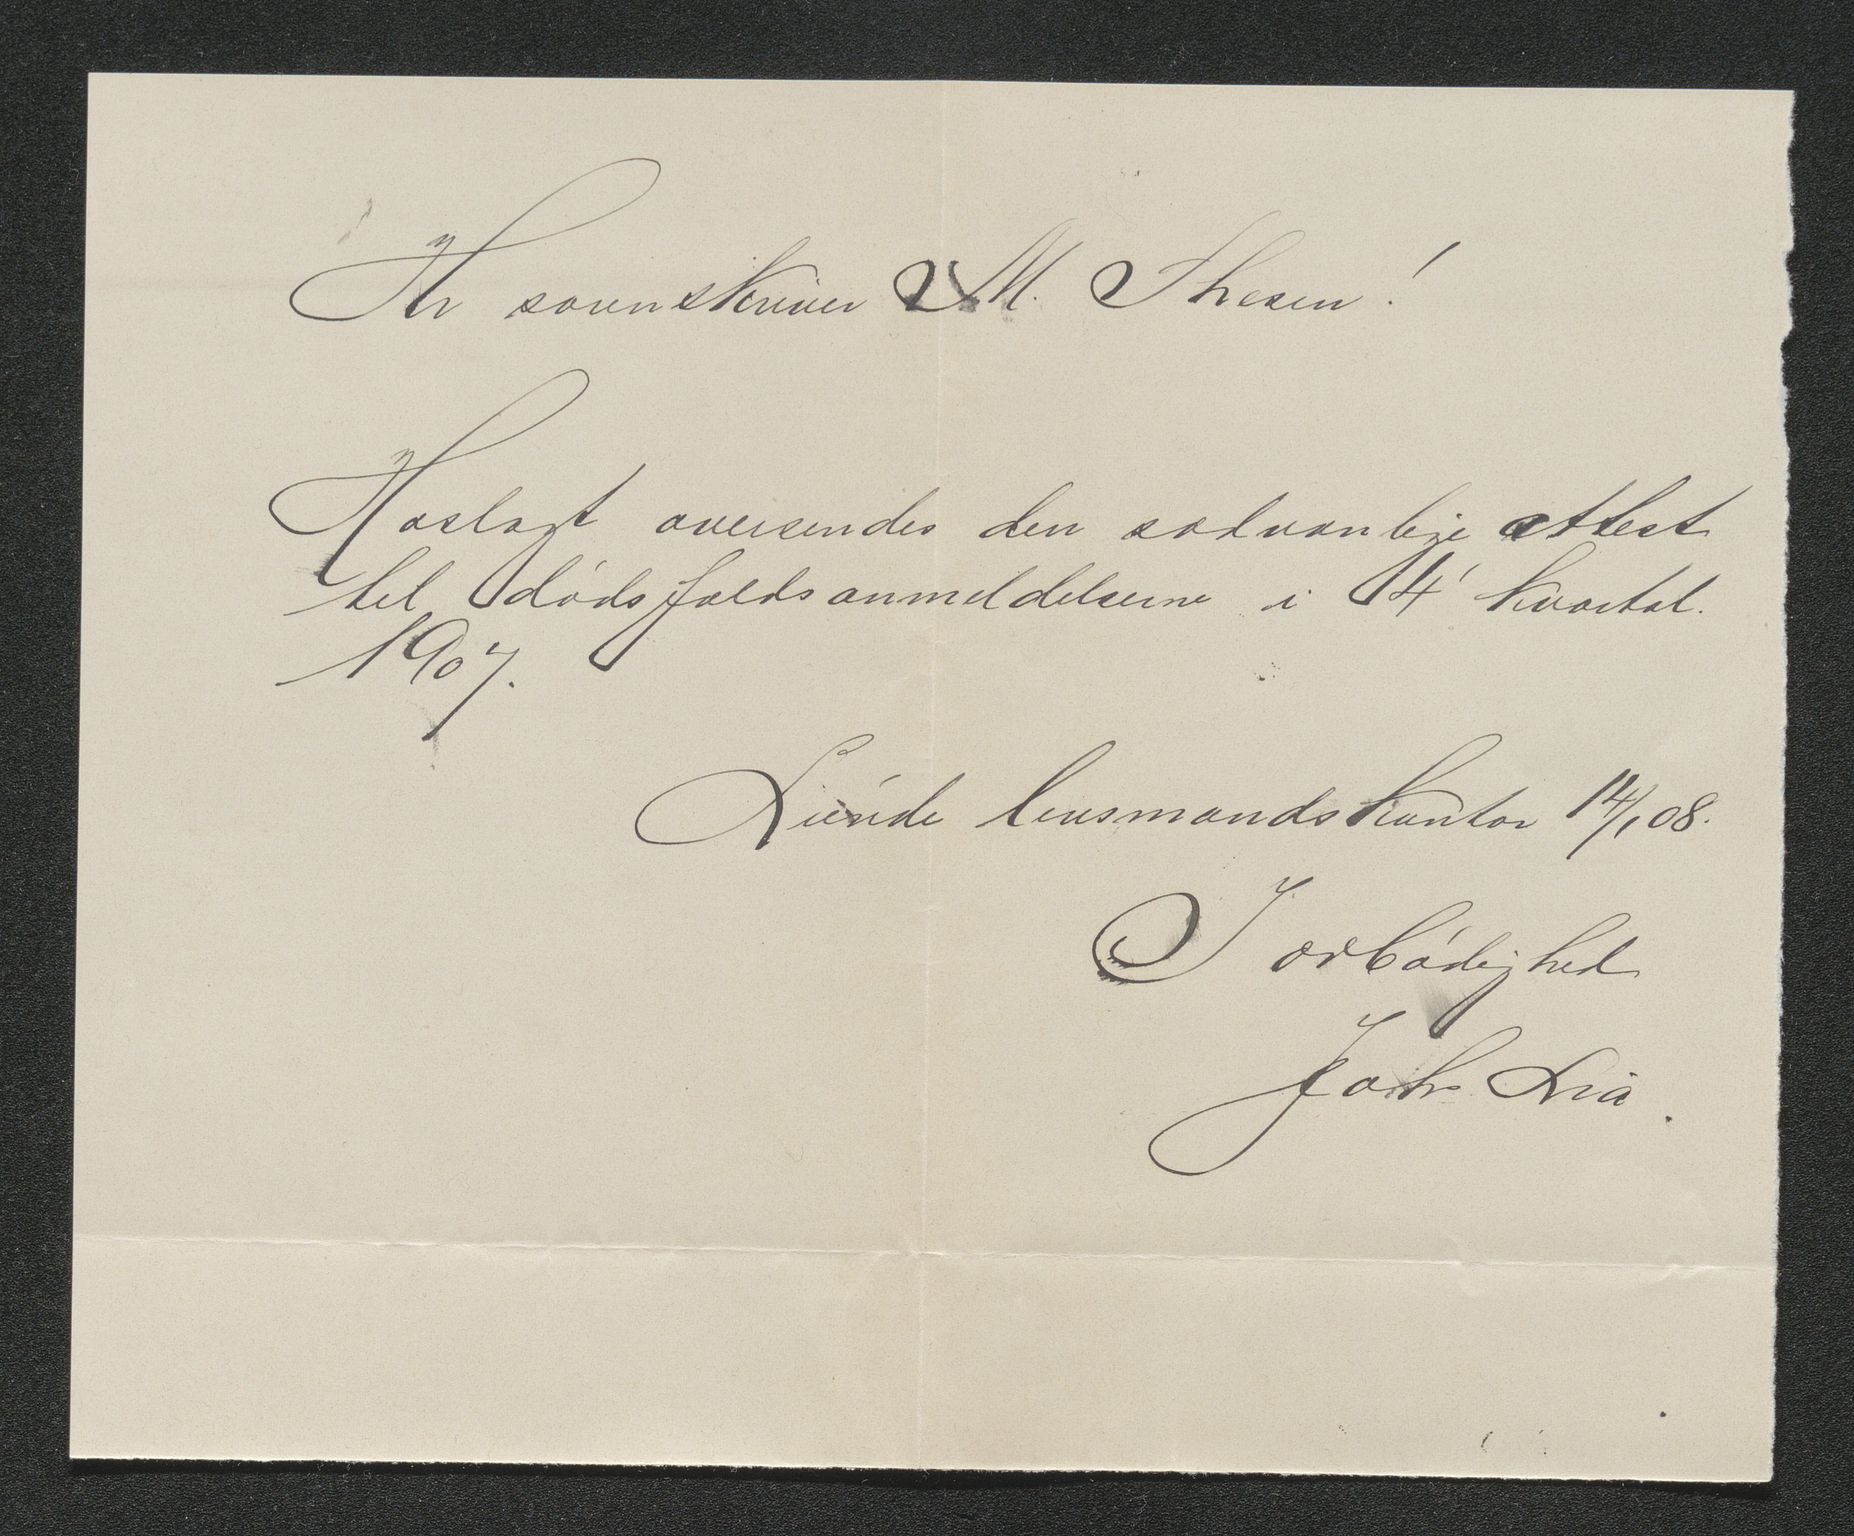 Hr sorenskriver M. Thesen!
Hoslagt oversendes den sedvanlige attest
til dødsfaldsanmeldelserne i 4' kvartal.
1907.
Lunde lensmandskontor 14/1 08.
I ærbødighed
Johs Lia.